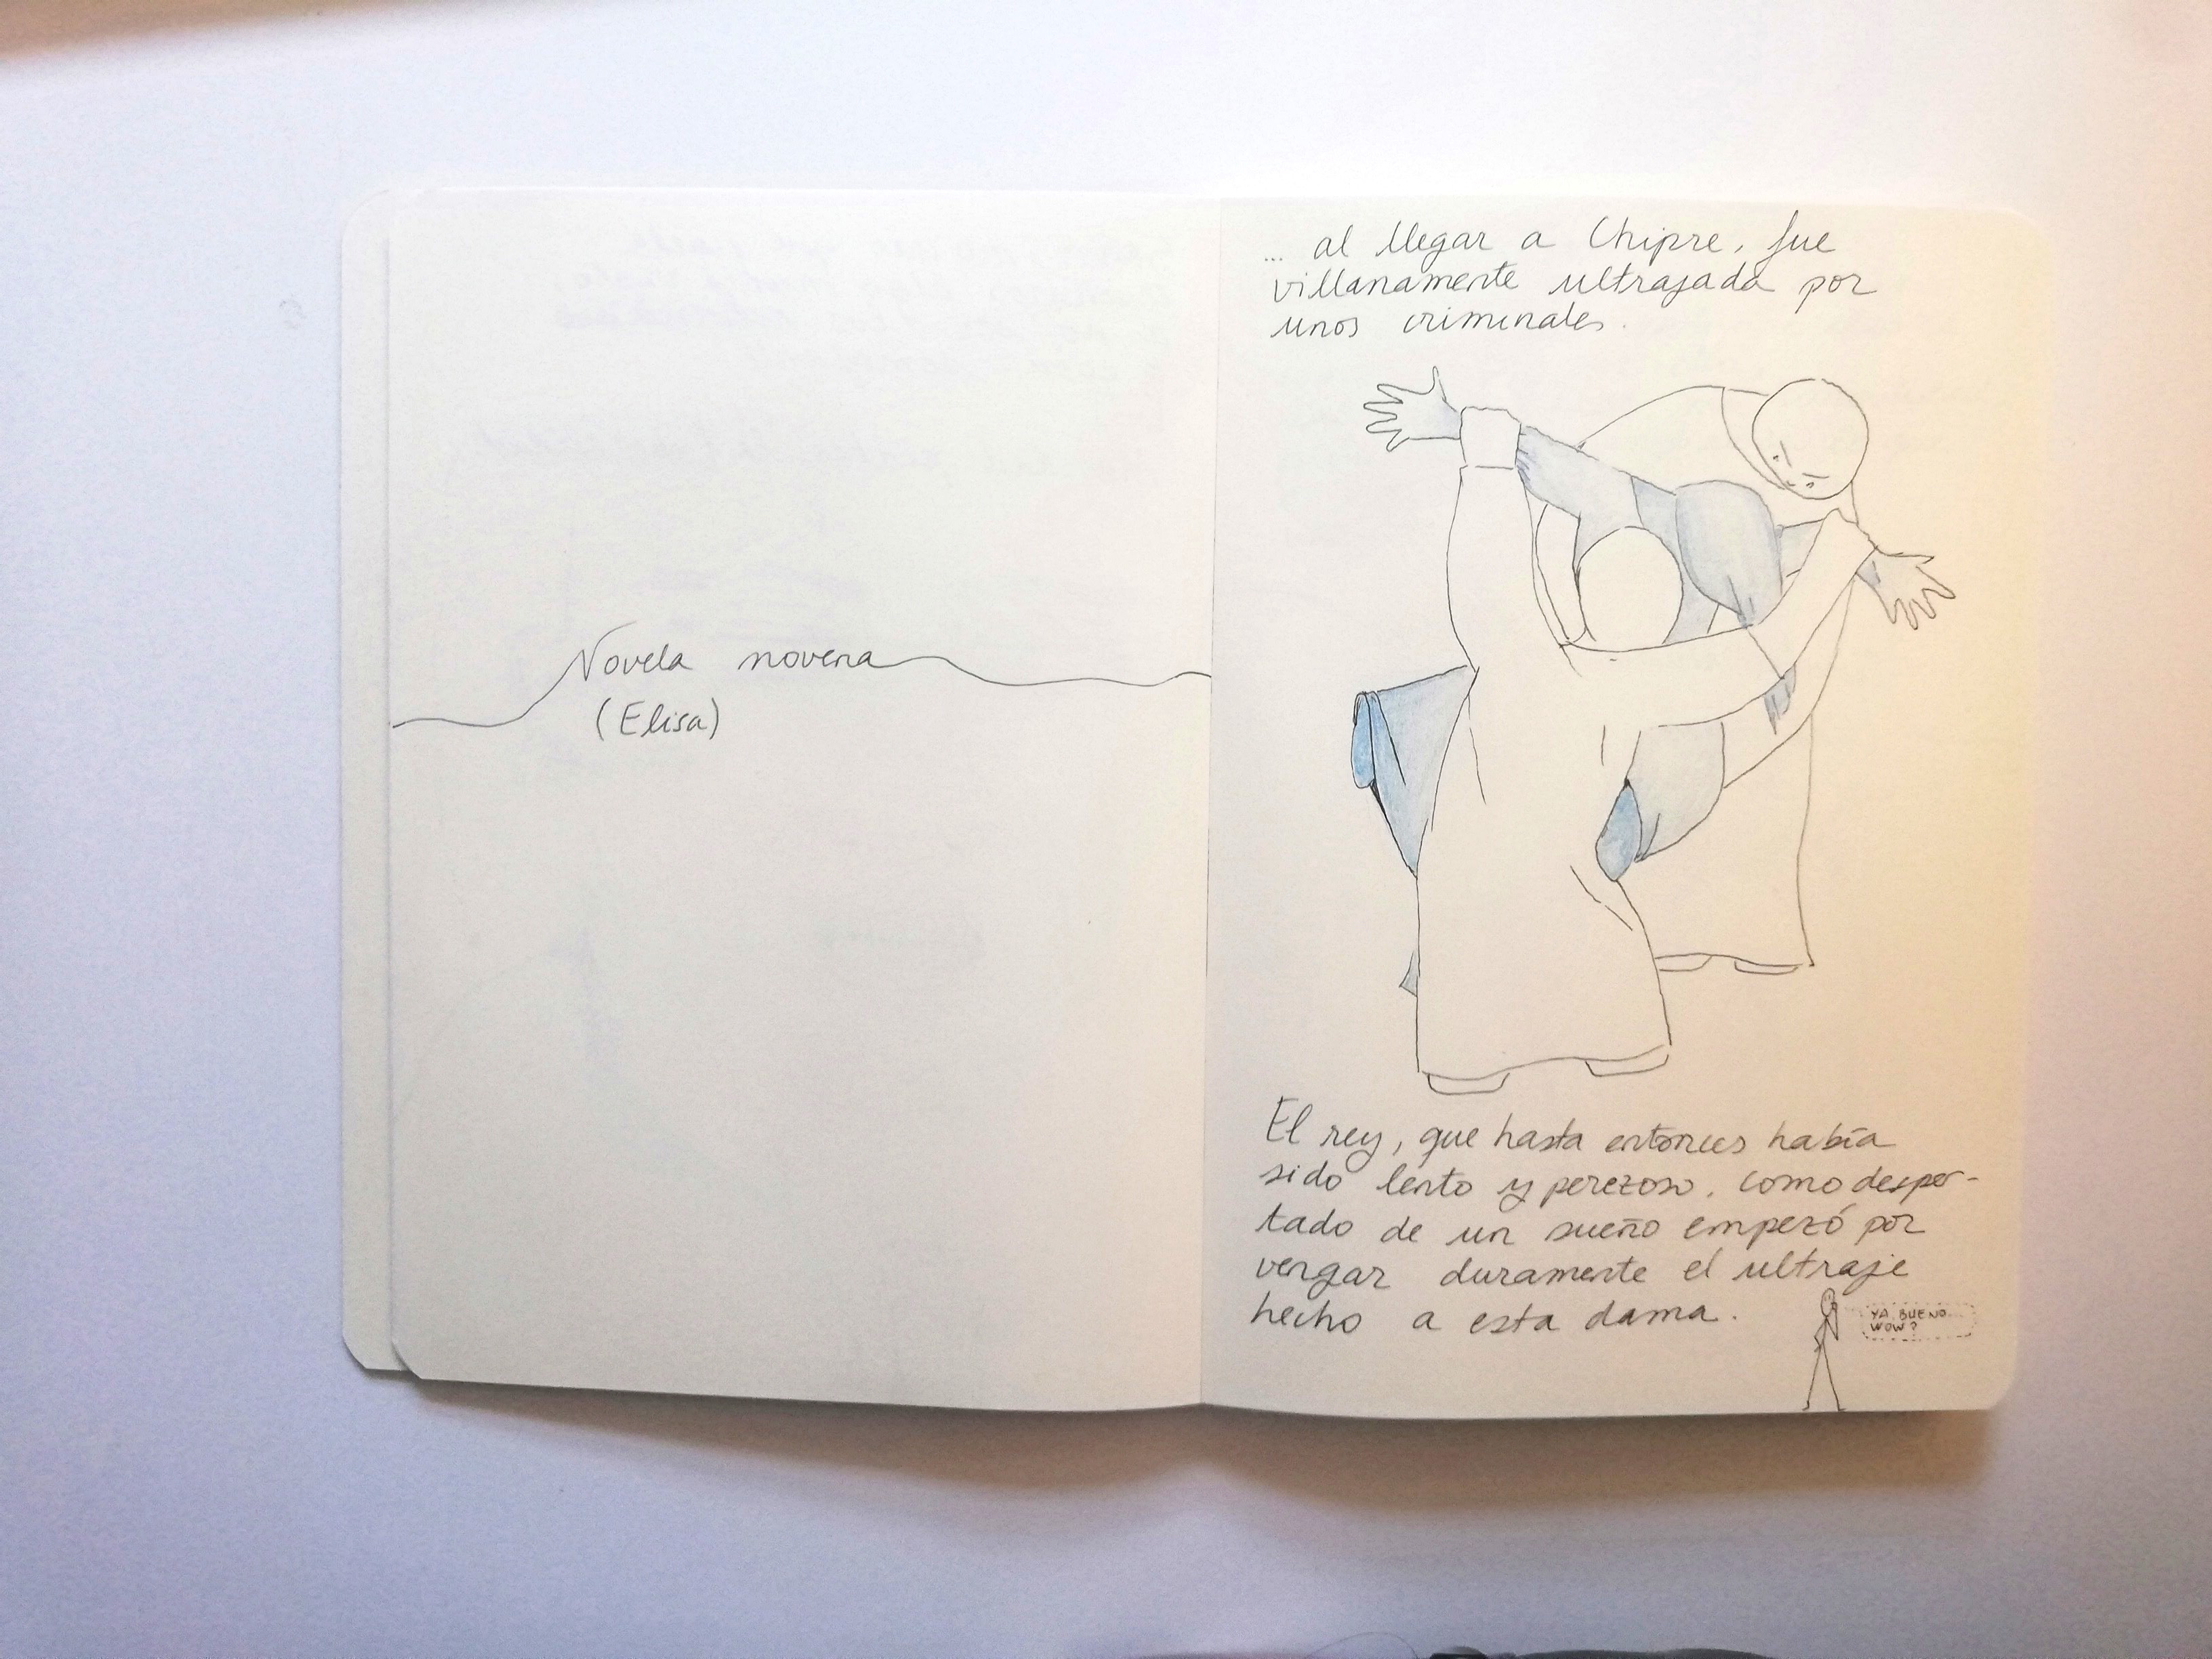 Novela novena
(Elisa)
... al llegar a Chipre, fue
villanamente ultrajada por
unos criminales.
El rey, que hasta entonces había
sido lento y perezoso, como desper-
tado de un sueño empezó por
vengar duramente el ultraje
hecho a esta dama.
YA, BUENO...
WOW?